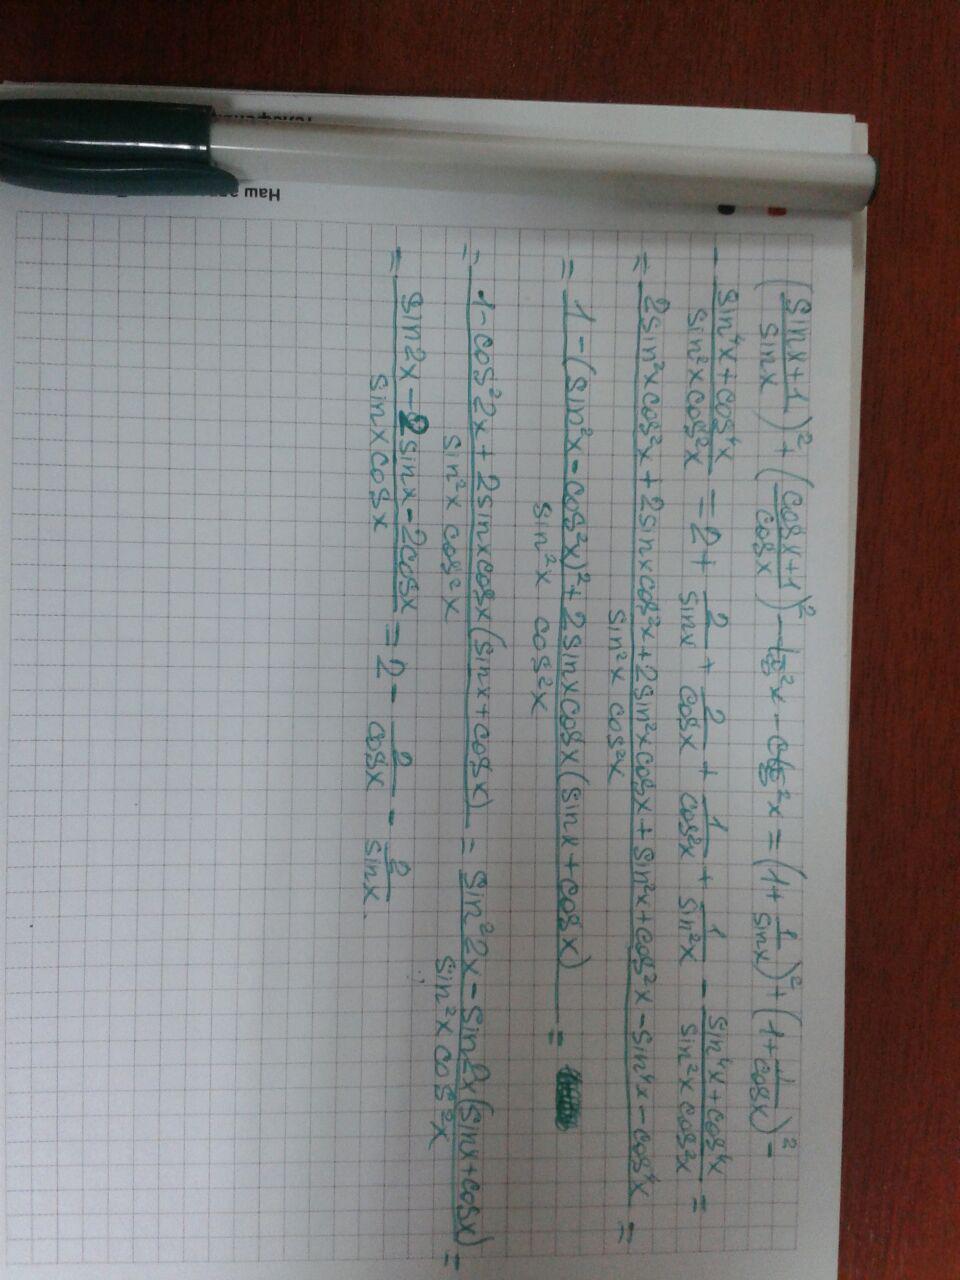 ((sinx+1)/sinx)² + ((cosx+1)/cosx)² - tg²x - ctg²x = (1+ 1/sinx)² + (1+ 1/cosx)² -
- (sin⁴x+cos⁴x)/(sin²x cos²x) = 2+ 2/sinx + 2/cosx + 1/cos²x + 1/sin²x - (sin⁴x+cos⁴x)/(sin²x cos²x) =
= (2sin²x cos²x + 2sinx cos²x + 2sin²x cosx + sin²x + cos²x - sin⁴x - cos⁴x)/(sin²x cos²x) =
= (1-(sin²x-cos²x)² + 2sinx cosx(sinx+cosx))/(sin²x cos²x) =
= (1-cos²2x + 2sinx cosx(sinx+cosx))/(sin²x cos²x) = (sin²2x - sin2x(sinx+cosx))/(sin²x cos²x) =
= (sin2x - 2sinx - 2cosx)/(sinx cosx) = 2 - 2/cosx - 2/sinx.
Наш